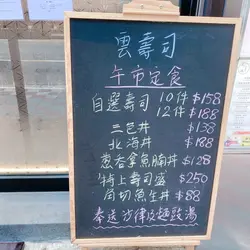 雲壽司
午市定食
自選壽司 10件 $158
12件 $188
三色丼 $138
北海丼 $188
蔥吞拿魚腩丼 $128
特上壽司盛 $250
角切魚生丼 $88
奉送沙律及麵豉湯